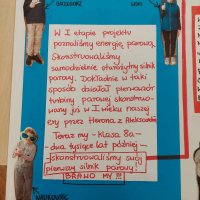 GRZEGORZ
WIKI
W I etapie projektu
poznaliśmy energię parową.
Skonstruowaliśmy
samodzielnie starożytny silnik
parowy. Dokładnie w taki
sposób działał pierwowzór
turbiny parowej skonstruo-
wany już w I wieku naszej
ery przez Herona z Aleksandrii
Teraz my - klasa 8a -
- dwa tysiące lat później -
- skonstruowaliśmy swój
pierwszy silnik parowy!
BRAWO MY !!!
NAUKOWIEC